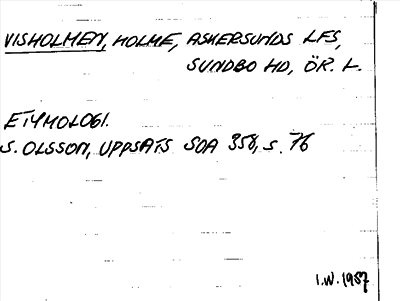 VISHOLMEN, HOLME, ASKERSUNDS LFS,
SUNDBO HD, ÖR. L.
ETYMOLOGI.
S. OLSSON, UPPSATS SOA 358, S. 76
I.W. 1957